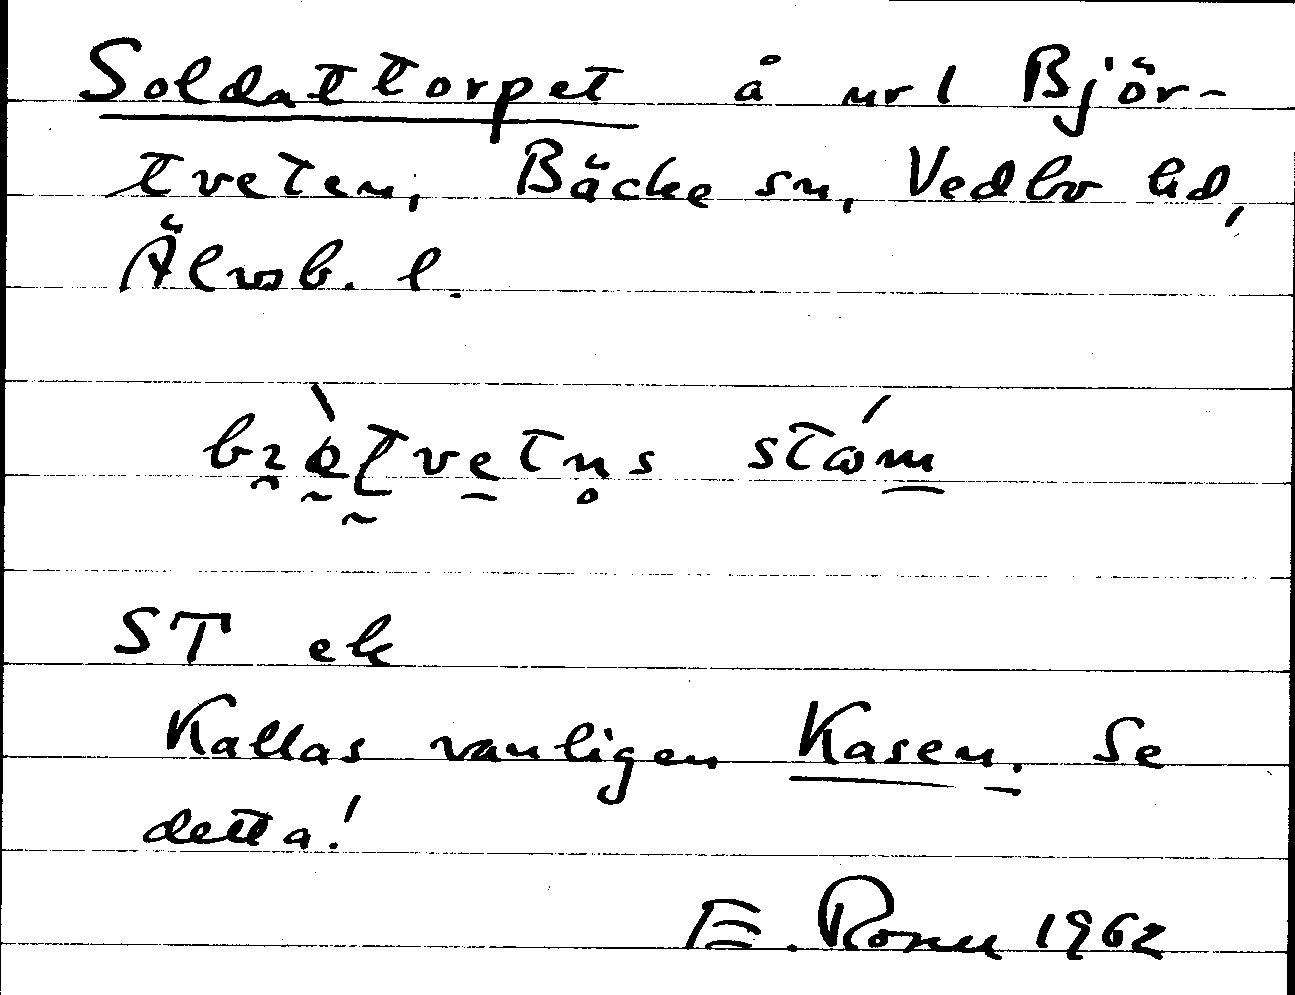 Soldattorpet å nr 1 Björ-
tveten, Bäcke sn, Vedbo hd,
Älvsb. l.
ST ek
Kallas vanligen Kasen. Se
detta!
E. 1962